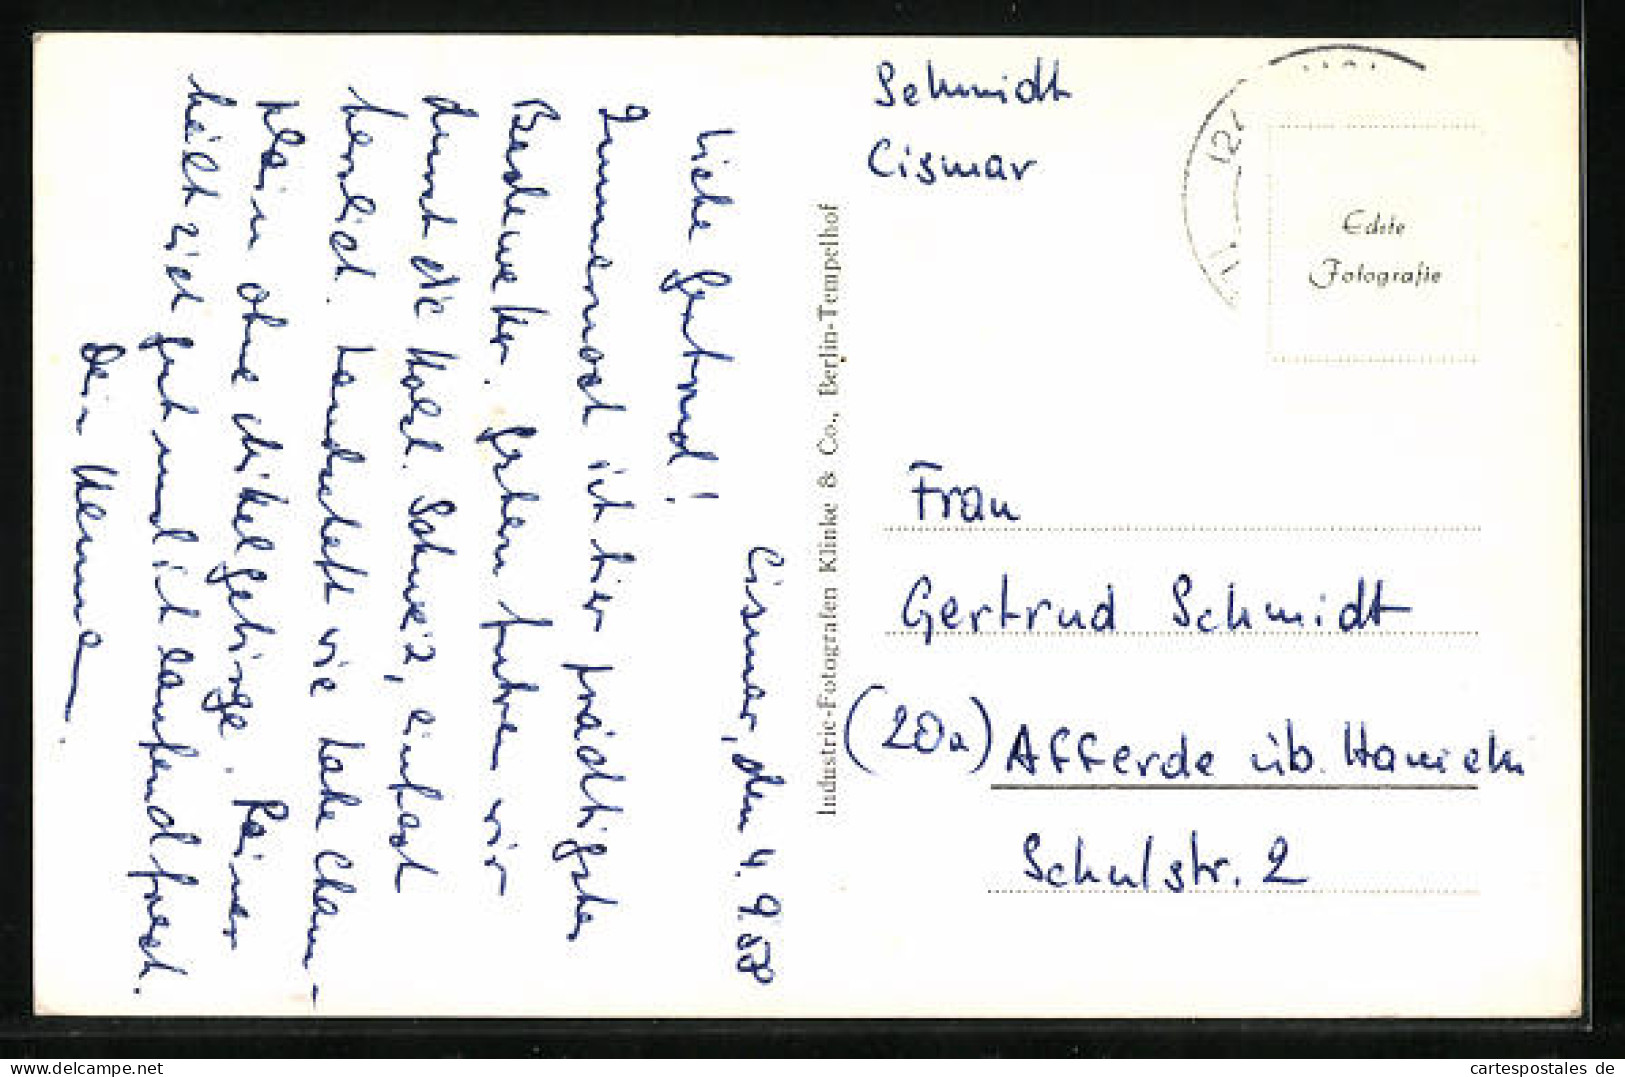 Cismar, den 4. 9. 58
Liebe Gertrud!
Immer noch ist hier prächtigstes
Badewetter. Gestern fuhren wir
durch die Holst. Schweiz, einfach
herrlich. Landschaft wie Lake Cham-
plain ohne
hält sich gut und ist laufend frech.
Dein
Industrie-Fotografen Klinke & Co., Berlin-Tempelhof
Schmidt
Cismar
Echte
Fotografie
Frau
Gertrud Schmidt
(20a) Afferde üb. Hameln
Schulstr. 2
cartespostales de
cartespostales de